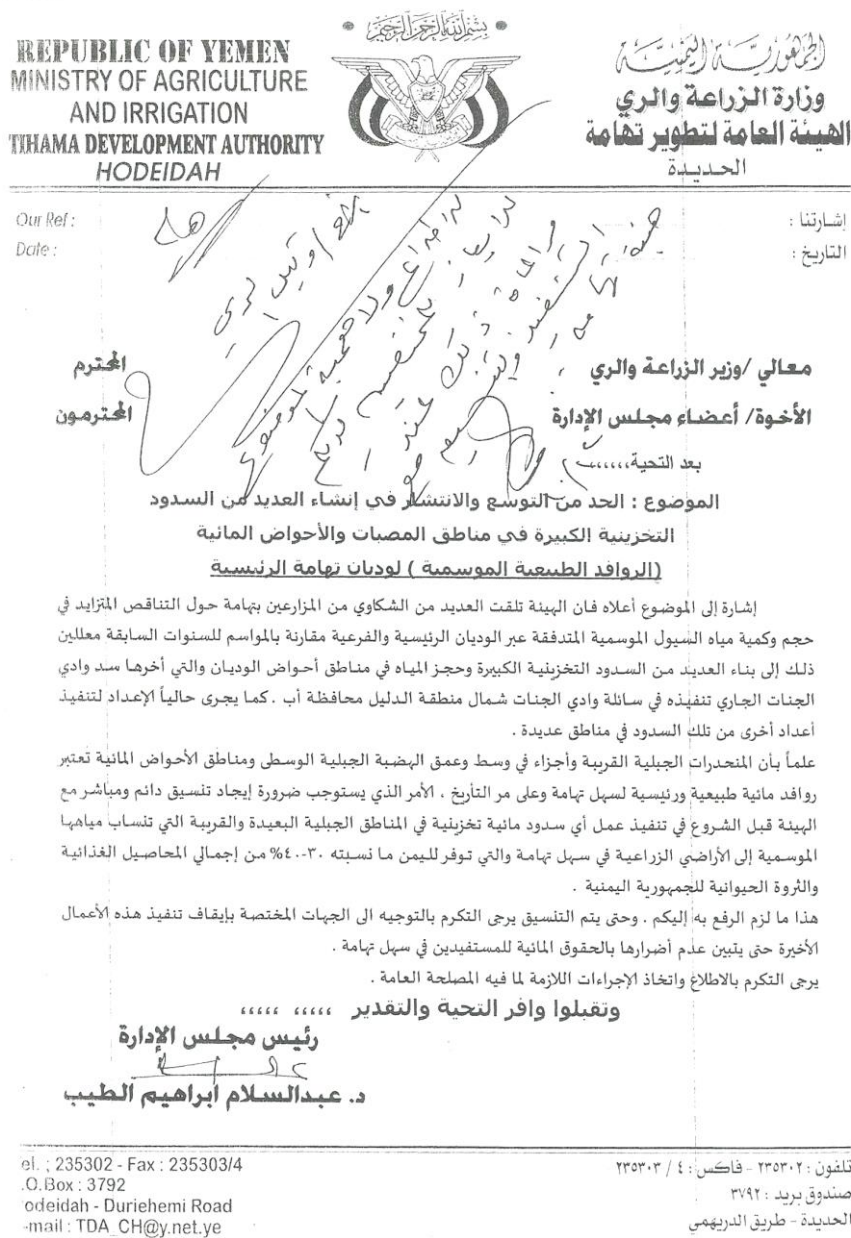 بسم الله الرحمن الرحيم
REPUBLIC OF YEMEN
MINISTRY OF AGRICULTURE
AND IRRIGATION
TIHAMA DEVELOPMENT AUTHORITY
HODEIDAH
الجمهورية اليمنية
وزارة الزراعة والري
الهيئة العامة لتطوير تهامة
الحديدة
Our Ref :
Date :
إشارتنا :
التاريخ :
معالي /وزير الزراعة والري المحترم
الأخوة/ أعضاء مجلس الإدارة المحترمون
بعد التحية،،،،،،
الموضوع : الحد من التوسع والانتشار في إنشاء العديد من السدود
التخزينية الكبيرة في مناطق المصبات والأحواض المائية
(الروافد الطبيعية الموسمية ) لوديان تهامة الرئيسية
إشارة إلى الموضوع أعلاه فان الهيئة تلقت العديد من الشكاوي من المزارعين بتهامة حول التناقص المتزايد في
حجم وكمية مياه السيول الموسمية المتدفقة عبر الوديان الرئيسية والفرعية مقارنة بالمواسم للسنوات السابقة معللين
ذلك إلى بناء العديد من السدود التخزينية الكبيرة وحجز المياه في مناطق أحواض الوديان والتي أخرها سد وادي
الجنات الجاري تنفيذه في سائلة وادي الجنات شمال منطقة الدليل محافظة أب . كما يجرى حالياً الإعداد لتنفيذ
أعداد أخرى من تلك السدود في مناطق عديدة .
علماً بأن المنحدرات الجبلية القريبة وأجزاء في وسط وعمق الهضبة الجبلية الوسطى ومناطق الأحواض المائية تعتبر
روافد مائية طبيعية ورئيسية لسهل تهامة وعلى مر التأريخ ، الأمر الذي يستوجب ضرورة إيجاد تنسيق دائم ومباشر مع
الهيئة قبل الشروع في تنفيذ عمل أي سدود مائية تخزينية في المناطق الجبلية البعيدة والقريبة التي تنساب مياهها
الموسمية إلى الأراضي الزراعية في سهل تهامة والتي توفر لليمن ما نسبته ٣٠-٤٠% من إجمالي المحاصيل الغذائية
والثروة الحيوانية للجمهورية اليمنية .
هذا ما لزم الرفع به إليكم . وحتى يتم التنسيق يرجى التكرم بالتوجيه الى الجهات المختصة بإيقاف تنفيذ هذه الأعمال
الأخيرة حتى يتبين عدم أضرارها بالحقوق المائية للمستفيدين في سهل تهامة .
يرجى التكرم بالاطلاع واتخاذ الإجراءات اللازمة لما فيه المصلحة العامة .
وتقبلوا وافر التحية والتقدير ،،،،، ،،،،،
رئيس مجلس الإدارة
د. عبدالسلام أبراهيم الطيب
el. ; 235302 - Fax : 235303/4
.O.Box : 3792
odeidah - Duriehemi Road
-mail : TDA_CH@y.net.ye
تلفون : ٢٣٥٣٠٢ - فاكس : ٤ / ٢٣٥٣٠٣
صندوق بريد : ٣٧٩٢
الحديدة - طريق الدريهمي